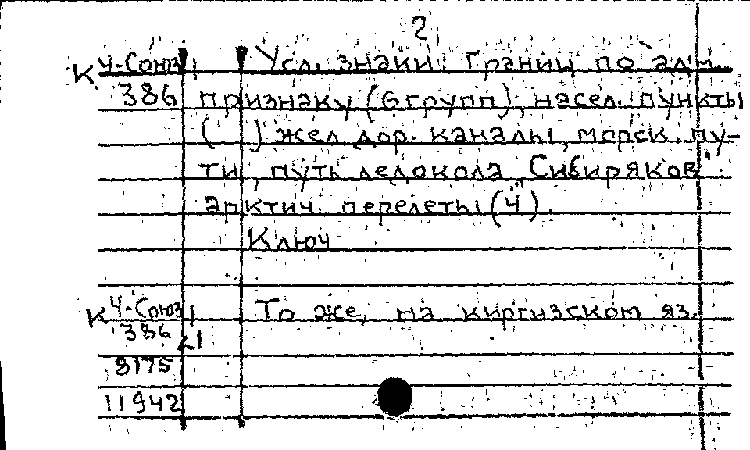 2
К 4-Союз Усл. знаки: Границ по адм.
386 признаку (6 групп), насел. пункты
( ) жел. дор. каналы, морск. пу-
ти, путь ледокола "Сибиряков"
арктич. перелеты (4).
Ключ
К 4-Союз То же, на киргизском яз.
386
8175
11942